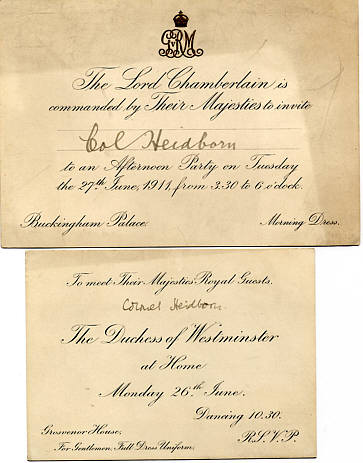 GRM
The Lord Chamberlain is
commanded by Their Majesties to invite
Col Heidborn
to an Afternoon Party on Tuesday
the 27th June, 1911, from 3.30 to 6 o'clock.
Buckingham Palace. Morning Dress.
To meet Their Majesties Royal Guests.
Colonel Heidborn
The Duchess of Westminster
at Home
Monday 26th June.
Dancing 10.30.
Grosvenor House, R.S.V.P.
For Gentlemen, Full Dress Uniform.